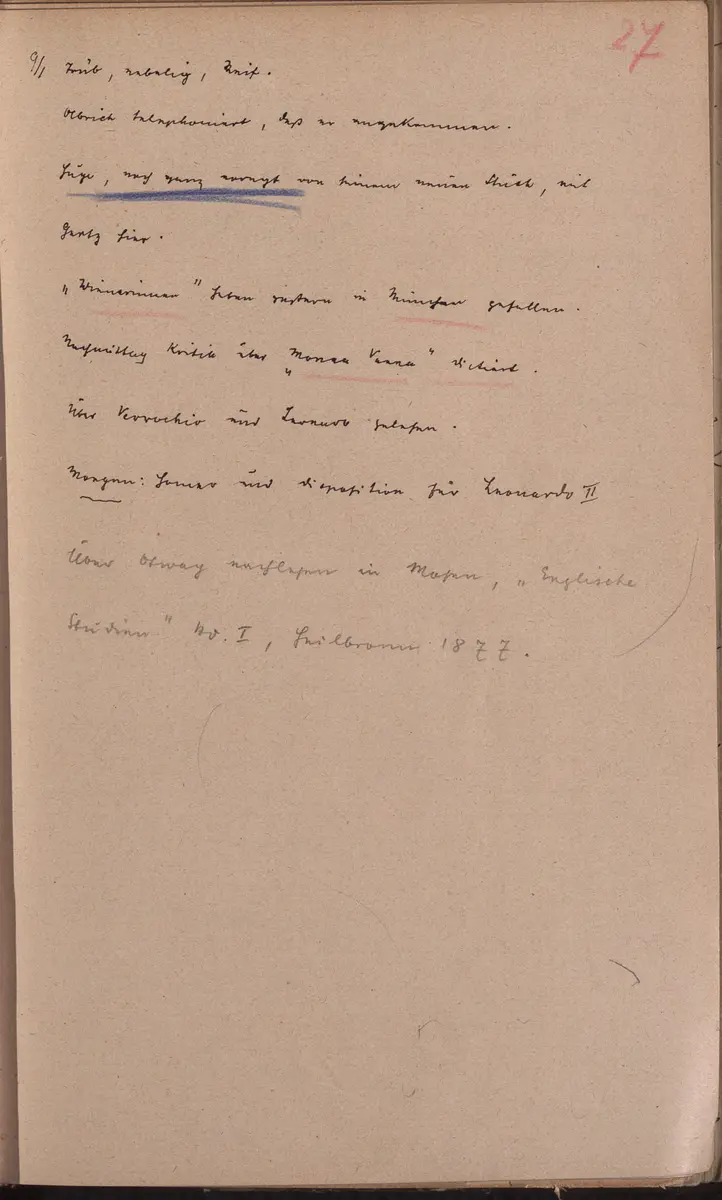 27
9/1 Trüb, nebelig, Reif.
Olbrich telephoniert, daß er angekommen.
Hugo, noch ganz erregt von seinem neuen Stück, mit
Gerty hier.
„Wienerinnen" haben gestern in München gefallen.
Nachmittag Kritik über „Monna Vanna" dictiert.
Über Verrochio und Leonardo gelesen.
Morgen: Homer und Disposition für Leonardo II
Über Otway nachlesen in Mosen, „Englische
Studien" Bd. I, Heilbronn 1877.